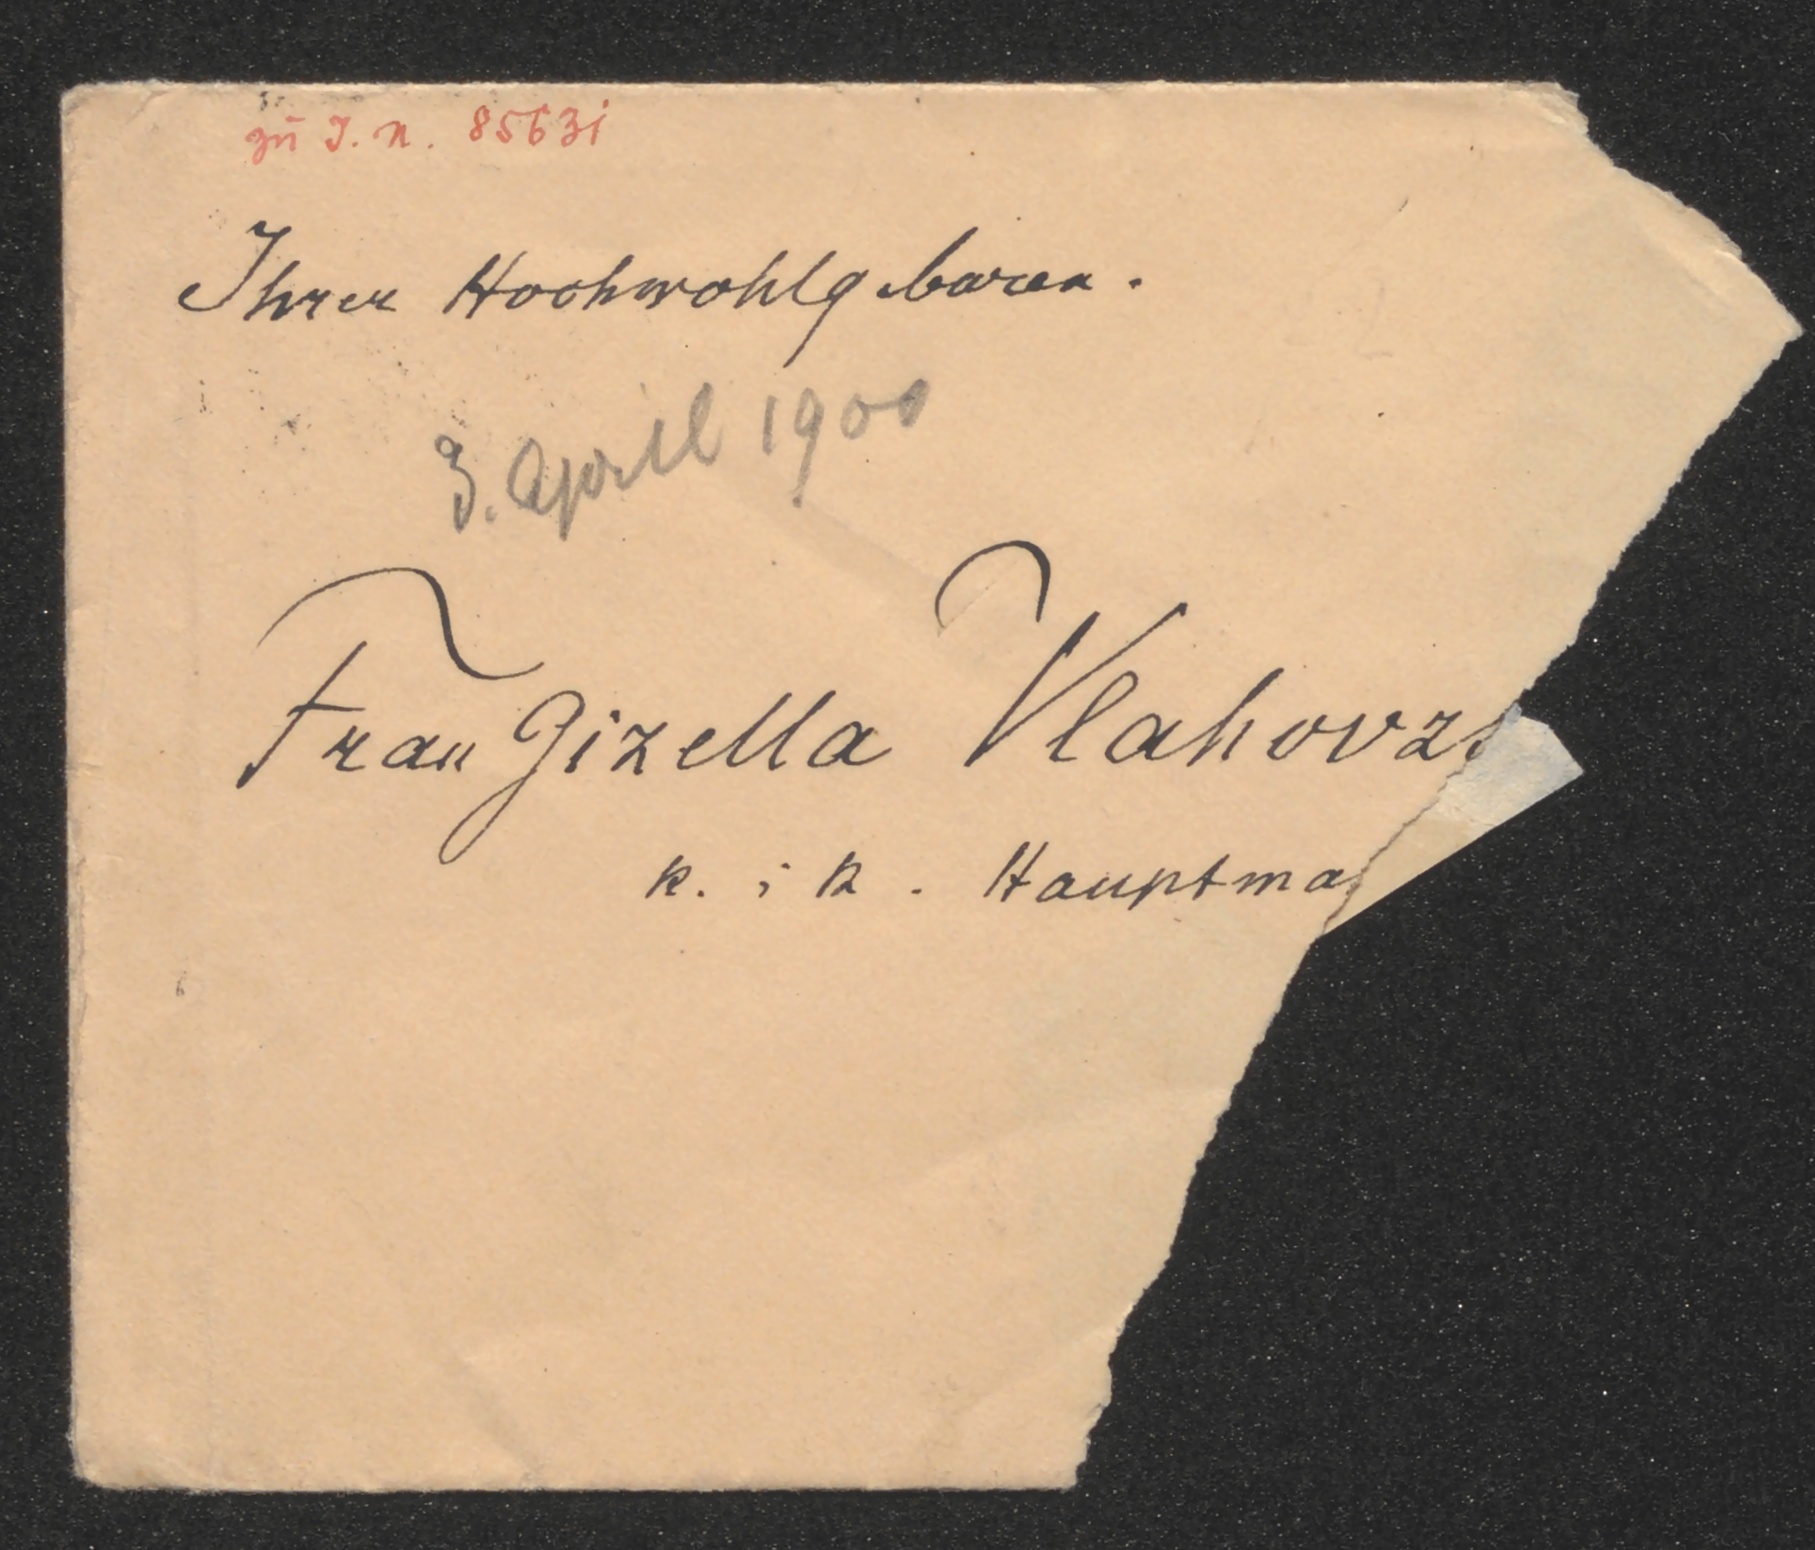 zu I. N. 85631
Ihrer Hochwohlgeboren.
3. April 1900
Frau Gizella Vlahovz
k. i k. Hauptma